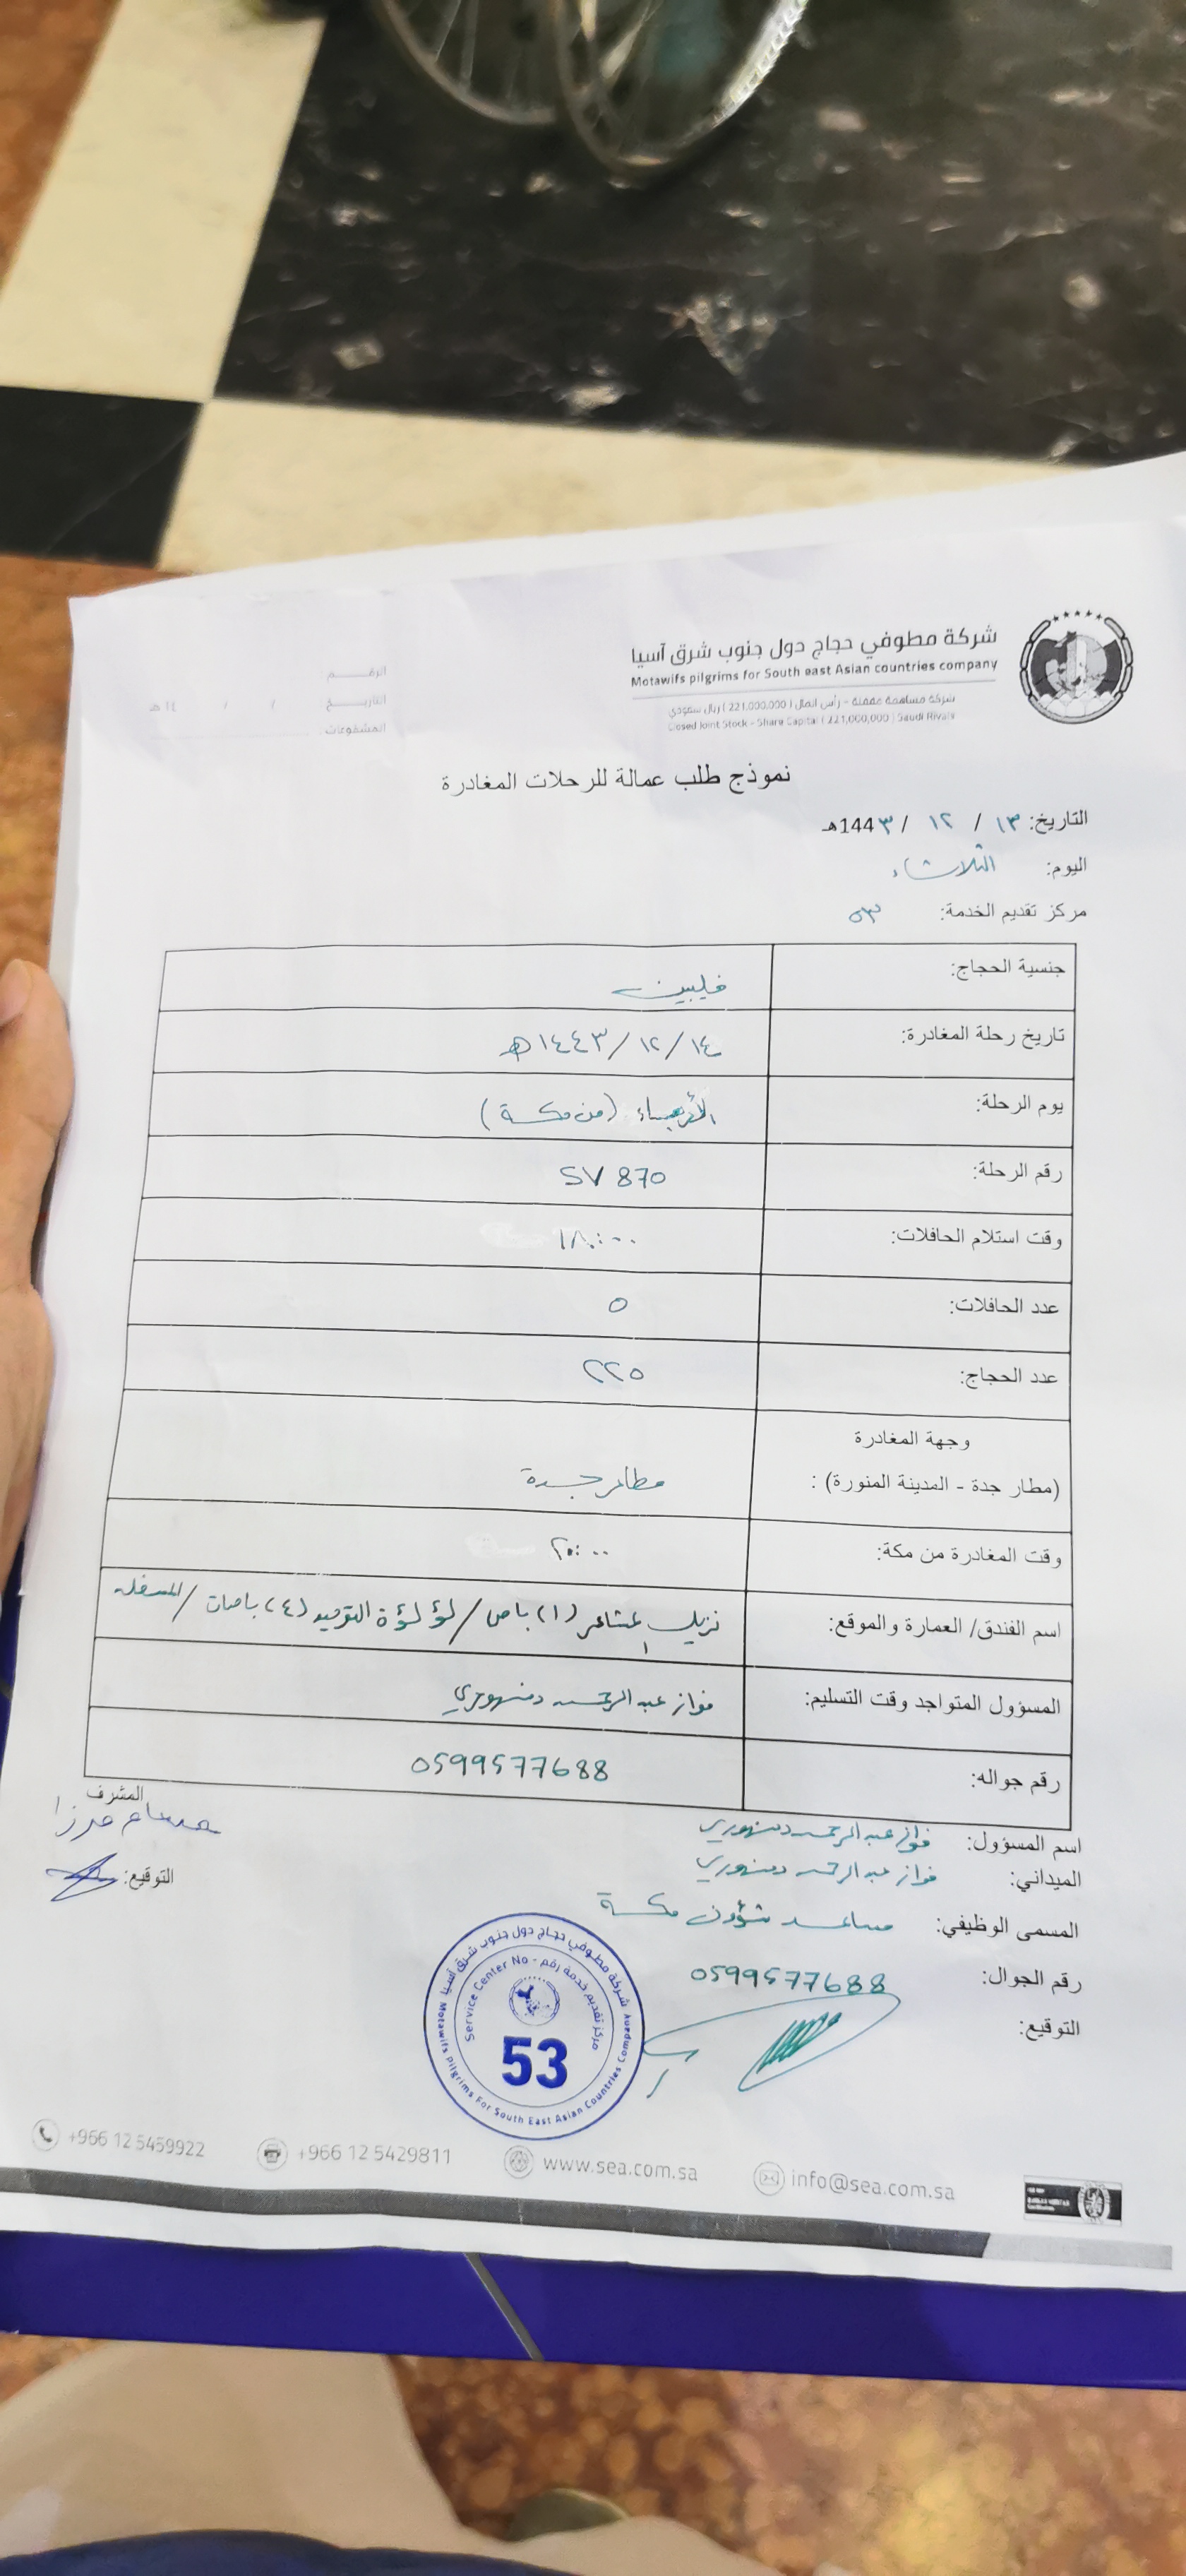 شركة مطوفي حجاج دول جنوب شرق آسيا
Motawifs pilgrims for South east Asian countries company
شركة مساهمة مقفلة - رأس المال ( 221,000,000 ) ريال سعودي
Closed Joint Stock - Share Capital ( 221,000,000 ) Saudi Riyals
الرقـــــــم
التاريـــــخ: / / ١٤ هـ
المشفوعات:
نموذج طلب عمالة للرحلات المغادرة
التاريخ: ١٣ / ١٢ / 144٣هـ
اليوم: الثلاثاء
مركز تقديم الخدمة: ٥٣
جنسية الحجاج: فلبين
تاريخ رحلة المغادرة: ١٤ / ١٢ / ١٤٤٣هـ
يوم الرحلة: الأربعاء (من مكة)
رقم الرحلة: SV 870
وقت استلام الحافلات: ١٨:٠٠
عدد الحافلات: ٥
عدد الحجاج: ٢٢٥
وجهة المغادرة
(مطار جدة - المدينة المنورة) : مطار جدة
وقت المغادرة من مكة: ٢٠:٠٠
اسم الفندق/ العمارة والموقع: نزيل المشاعر (١) باص / لؤلؤة التوحيد (٤) باصات / المسفله
المسؤول المتواجد وقت التسليم: فواز عبد الرحمن دمنهوري
رقم جواله: 0599577688
المشرف
حسام مرزا
التوقيع:
اسم المسؤول: فواز عبد الرحمن دمنهوري
الميداني: فواز عبد الرحمن دمنهوري
المسمى الوظيفي: مساعد شؤون مكة
رقم الجوال: 0599577688
التوقيع:
شركة مطوفي حجاج دول جنوب شرق آسيا
Motawifs Pilgrims For South East Asian Countries Company
مركز تقديم خدمة رقم - Service Center No
53
+966 12 5459922
+966 12 5429811
www.sea.com.sa
info@sea.com.sa